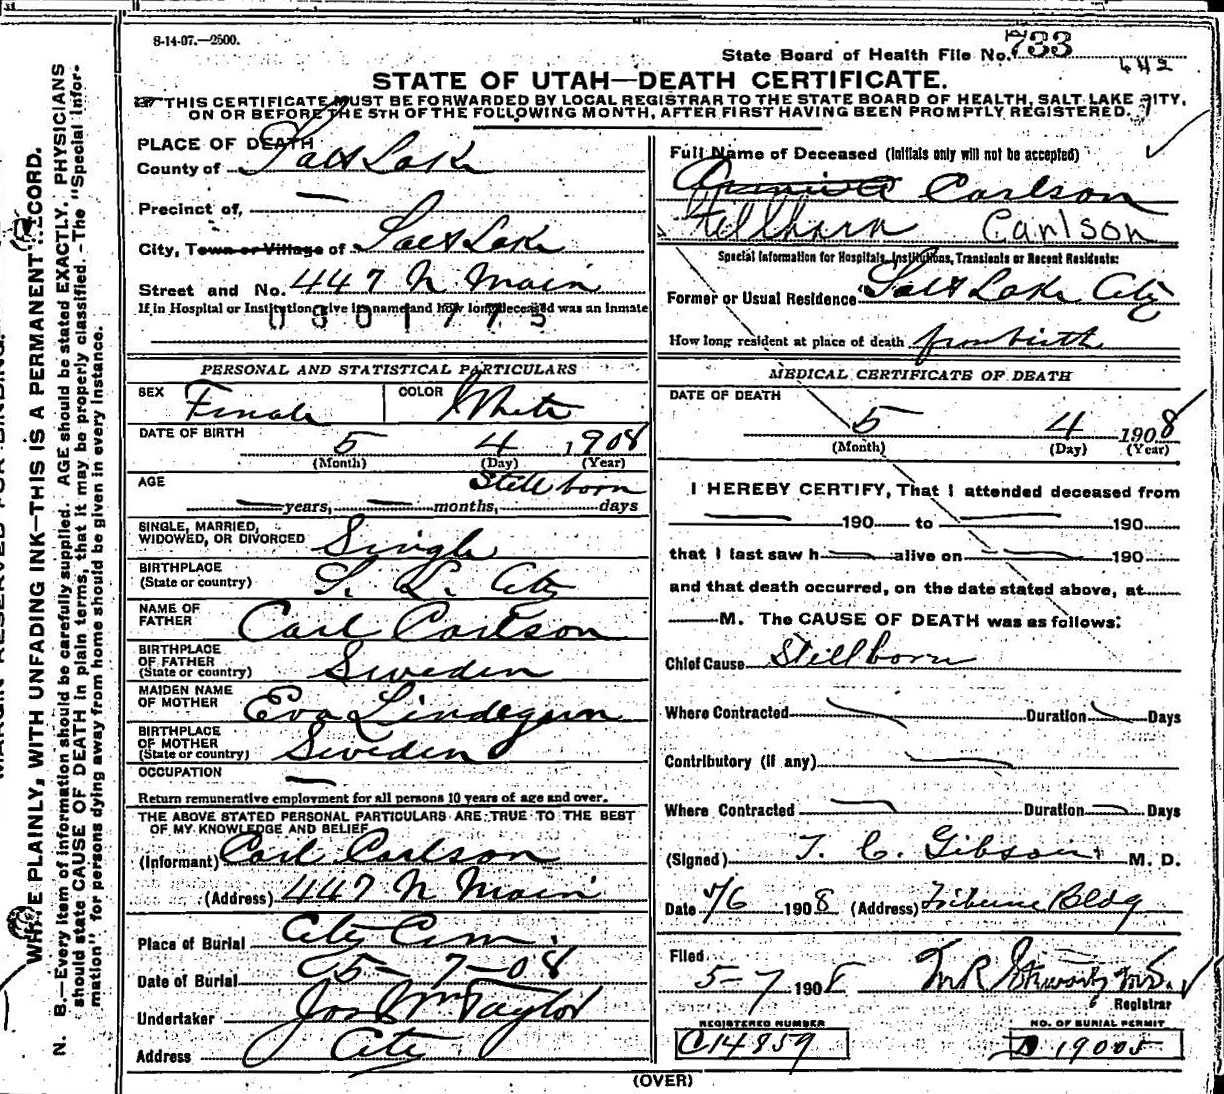 8-14-07.—2500.
State Board of Health File No. 733
642
STATE OF UTAH—DEATH CERTIFICATE.
THIS CERTIFICATE MUST BE FORWARDED BY LOCAL REGISTRAR TO THE STATE BOARD OF HEALTH, SALT LAKE CITY,
ON OR BEFORE THE 5TH OF THE FOLLOWING MONTH, AFTER FIRST HAVING BEEN PROMPTLY REGISTERED.
PLACE OF DEATH
County of Salt Lake
Precinct of, —
City, Town or Village of Salt Lake
Street and No. 447 N Main
If in Hospital or Institution, give its name and how long deceased was an Inmate
0301775
PERSONAL AND STATISTICAL PARTICULARS
SEX Female COLOR White
DATE OF BIRTH
5 4 1908
(Month) (Day) (Year)
AGE Stillborn
— years, — months, days
SINGLE, MARRIED,
WIDOWED, OR DIVORCED Single
BIRTHPLACE
(State or country) S. L. City
NAME OF
FATHER Carl Carlson
BIRTHPLACE
OF FATHER
(State or country) Sweden
MAIDEN NAME
OF MOTHER Eva
BIRTHPLACE
OF MOTHER
(State or country) Sweden
OCCUPATION —
Return remunerative employment for all persons 10 years of age and over.
THE ABOVE STATED PERSONAL PARTICULARS ARE TRUE TO THE BEST
OF MY KNOWLEDGE AND BELIEF
(Informant) Carl Carlson
(Address) 447 N Main
Place of Burial City Cem.
Date of Burial 5-7-08
Undertaker Jos Wm Taylor
Address City
Full Name of Deceased (Initials only will not be accepted)
Carlson
Stillborn Carlson
Special Information for Hospitals, Institutions, Transients or Recent Residents:
Former or Usual Residence Salt Lake City
How long resident at place of death from birth
MEDICAL CERTIFICATE OF DEATH
DATE OF DEATH
5 4 1908
(Month) (Day) (Year)
I HEREBY CERTIFY, That I attended deceased from
— 190 to — 190
that I last saw h— alive on — 190
and that death occurred, on the date stated above, at
—M. The CAUSE OF DEATH was as follows:
Chief Cause Stillborn
Where Contracted — Duration — Days
Contributory (if any) —
Where Contracted — Duration — Days
(Signed) T. C. Gibson M. D.
Date 5/6 1908 (Address) Tribune Bldg
Filed
5-7 1908 M.D.
Registrar
REGISTERED NUMBER
C14859
NO. OF BURIAL PERMIT
D 19005
(OVER)
WRITE PLAINLY, WITH UNFADING INK—THIS IS A PERMANENT RECORD.
N. B.—Every item of information should be carefully supplied. AGE should be stated EXACTLY. PHYSICIANS
should state CAUSE OF DEATH in plain terms, that it may be properly classified.—The "Special Infor-
mation" for persons dying away from home should be given in every instance.